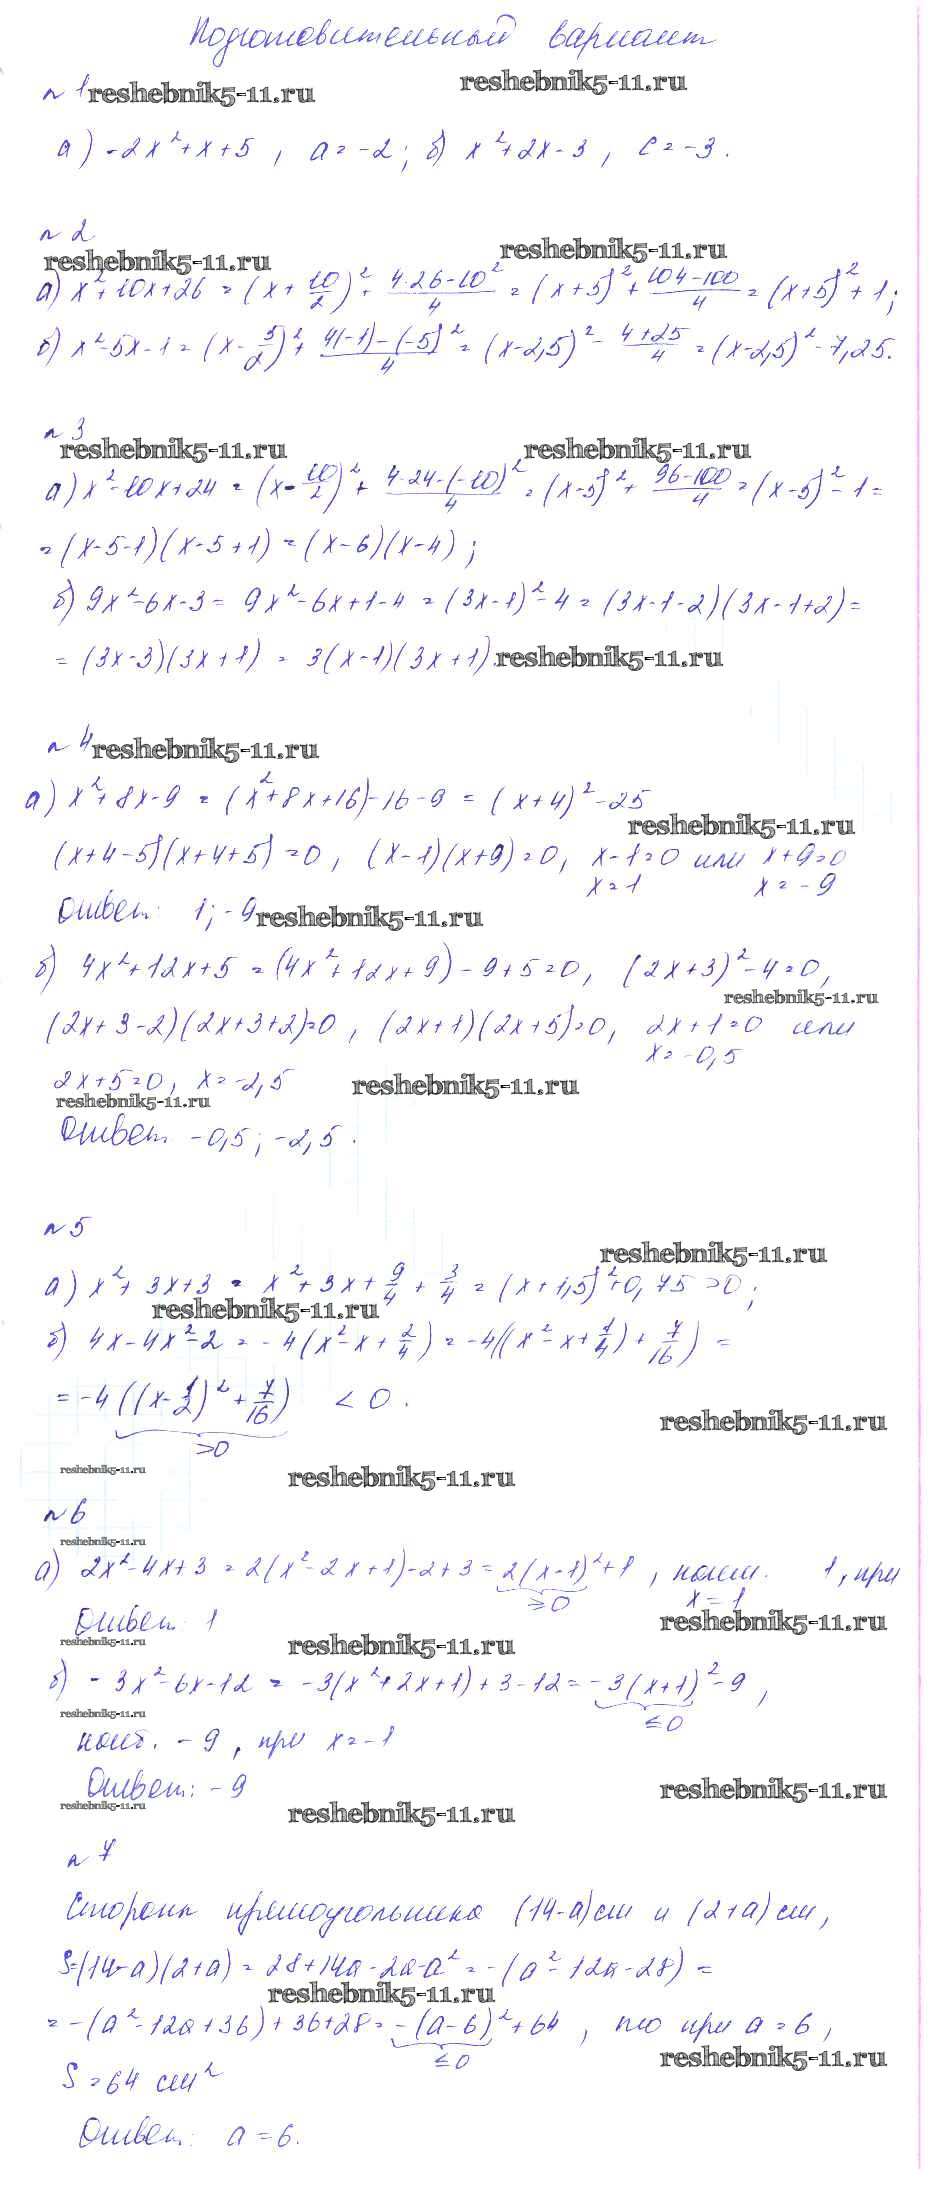 Подготовительный вариант
№1 reshebnik5-11.ru reshebnik5-11.ru
а) -2x²+x+5, a=-2; б) x²+2x-3, c=-3.
№2
reshebnik5-11.ru reshebnik5-11.ru
а) x²+10x+26 = (x+10/2)²+ (4·26-10²)/4 = (x+5)²+ (104-100)/4 = (x+5)²+1;
б) x²-5x-1 = (x-5/2)²+ (4(-1)-(-5)²)/4 = (x-2,5)²- (4+25)/4 = (x-2,5)²-7,25.
№3
reshebnik5-11.ru reshebnik5-11.ru
а) x²-10x+24 = (x-10/2)²+ (4·24-(-10)²)/4 = (x-5)²+ (96-100)/4 = (x-5)²-1 =
= (x-5-1)(x-5+1) = (x-6)(x-4);
б) 9x²-6x-3 = 9x²-6x+1-4 = (3x-1)²-4 = (3x-1-2)(3x-1+2) =
= (3x-3)(3x+1) = 3(x-1)(3x+1). reshebnik5-11.ru
№4 reshebnik5-11.ru
а) x²+8x-9 = (x²+8x+16)-16-9 = (x+4)²-25
reshebnik5-11.ru
(x+4-5)(x+4+5)=0, (x-1)(x+9)=0, x-1=0 или x+9=0
x=1 x=-9
Ответ: 1; -9 reshebnik5-11.ru
б) 4x²+12x+5 = (4x²+12x+9)-9+5=0, (2x+3)²-4=0,
reshebnik5-11.ru
(2x+3-2)(2x+3+2)=0, (2x+1)(2x+5)=0, 2x+1=0 или
x=-0,5
2x+5=0, x=-2,5 reshebnik5-11.ru
reshebnik5-11.ru
Ответ: -0,5; -2,5.
№5
reshebnik5-11.ru
а) x²+3x+3 = x²+3x+9/4+3/4 = (x+1,5)²+0,75>0;
reshebnik5-11.ru
б) 4x-4x²-2 = -4(x²-x+2/4) = -4((x²-x+1/4)+7/16) =
= -4((x-1/2)²+7/16) <0.
reshebnik5-11.ru
>0
reshebnik5-11.ru reshebnik5-11.ru
№6
reshebnik5-11.ru
а) 2x²-4x+3 = 2(x²-2x+1)-2+3 = 2(x-1)²+1, наим. 1, при
≥0 x=1
Ответ: 1 reshebnik5-11.ru
reshebnik5-11.ru reshebnik5-11.ru
б) -3x²-6x-12 = -3(x²+2x+1)+3-12 = -3(x+1)²-9,
reshebnik5-11.ru ≤0
наиб. -9, при x=-1
Ответ: -9 reshebnik5-11.ru
reshebnik5-11.ru reshebnik5-11.ru
№7
Стороны прямоугольника (14-a)см и (2+a)см,
S=(14-a)(2+a) = 28+14a-2a-a² = -(a²-12a-28) =
reshebnik5-11.ru
= -(a²-12a+36)+36+28 = -(a-6)²+64, то при a=6,
≤0 reshebnik5-11.ru
S=64 см²
Ответ: a=6.